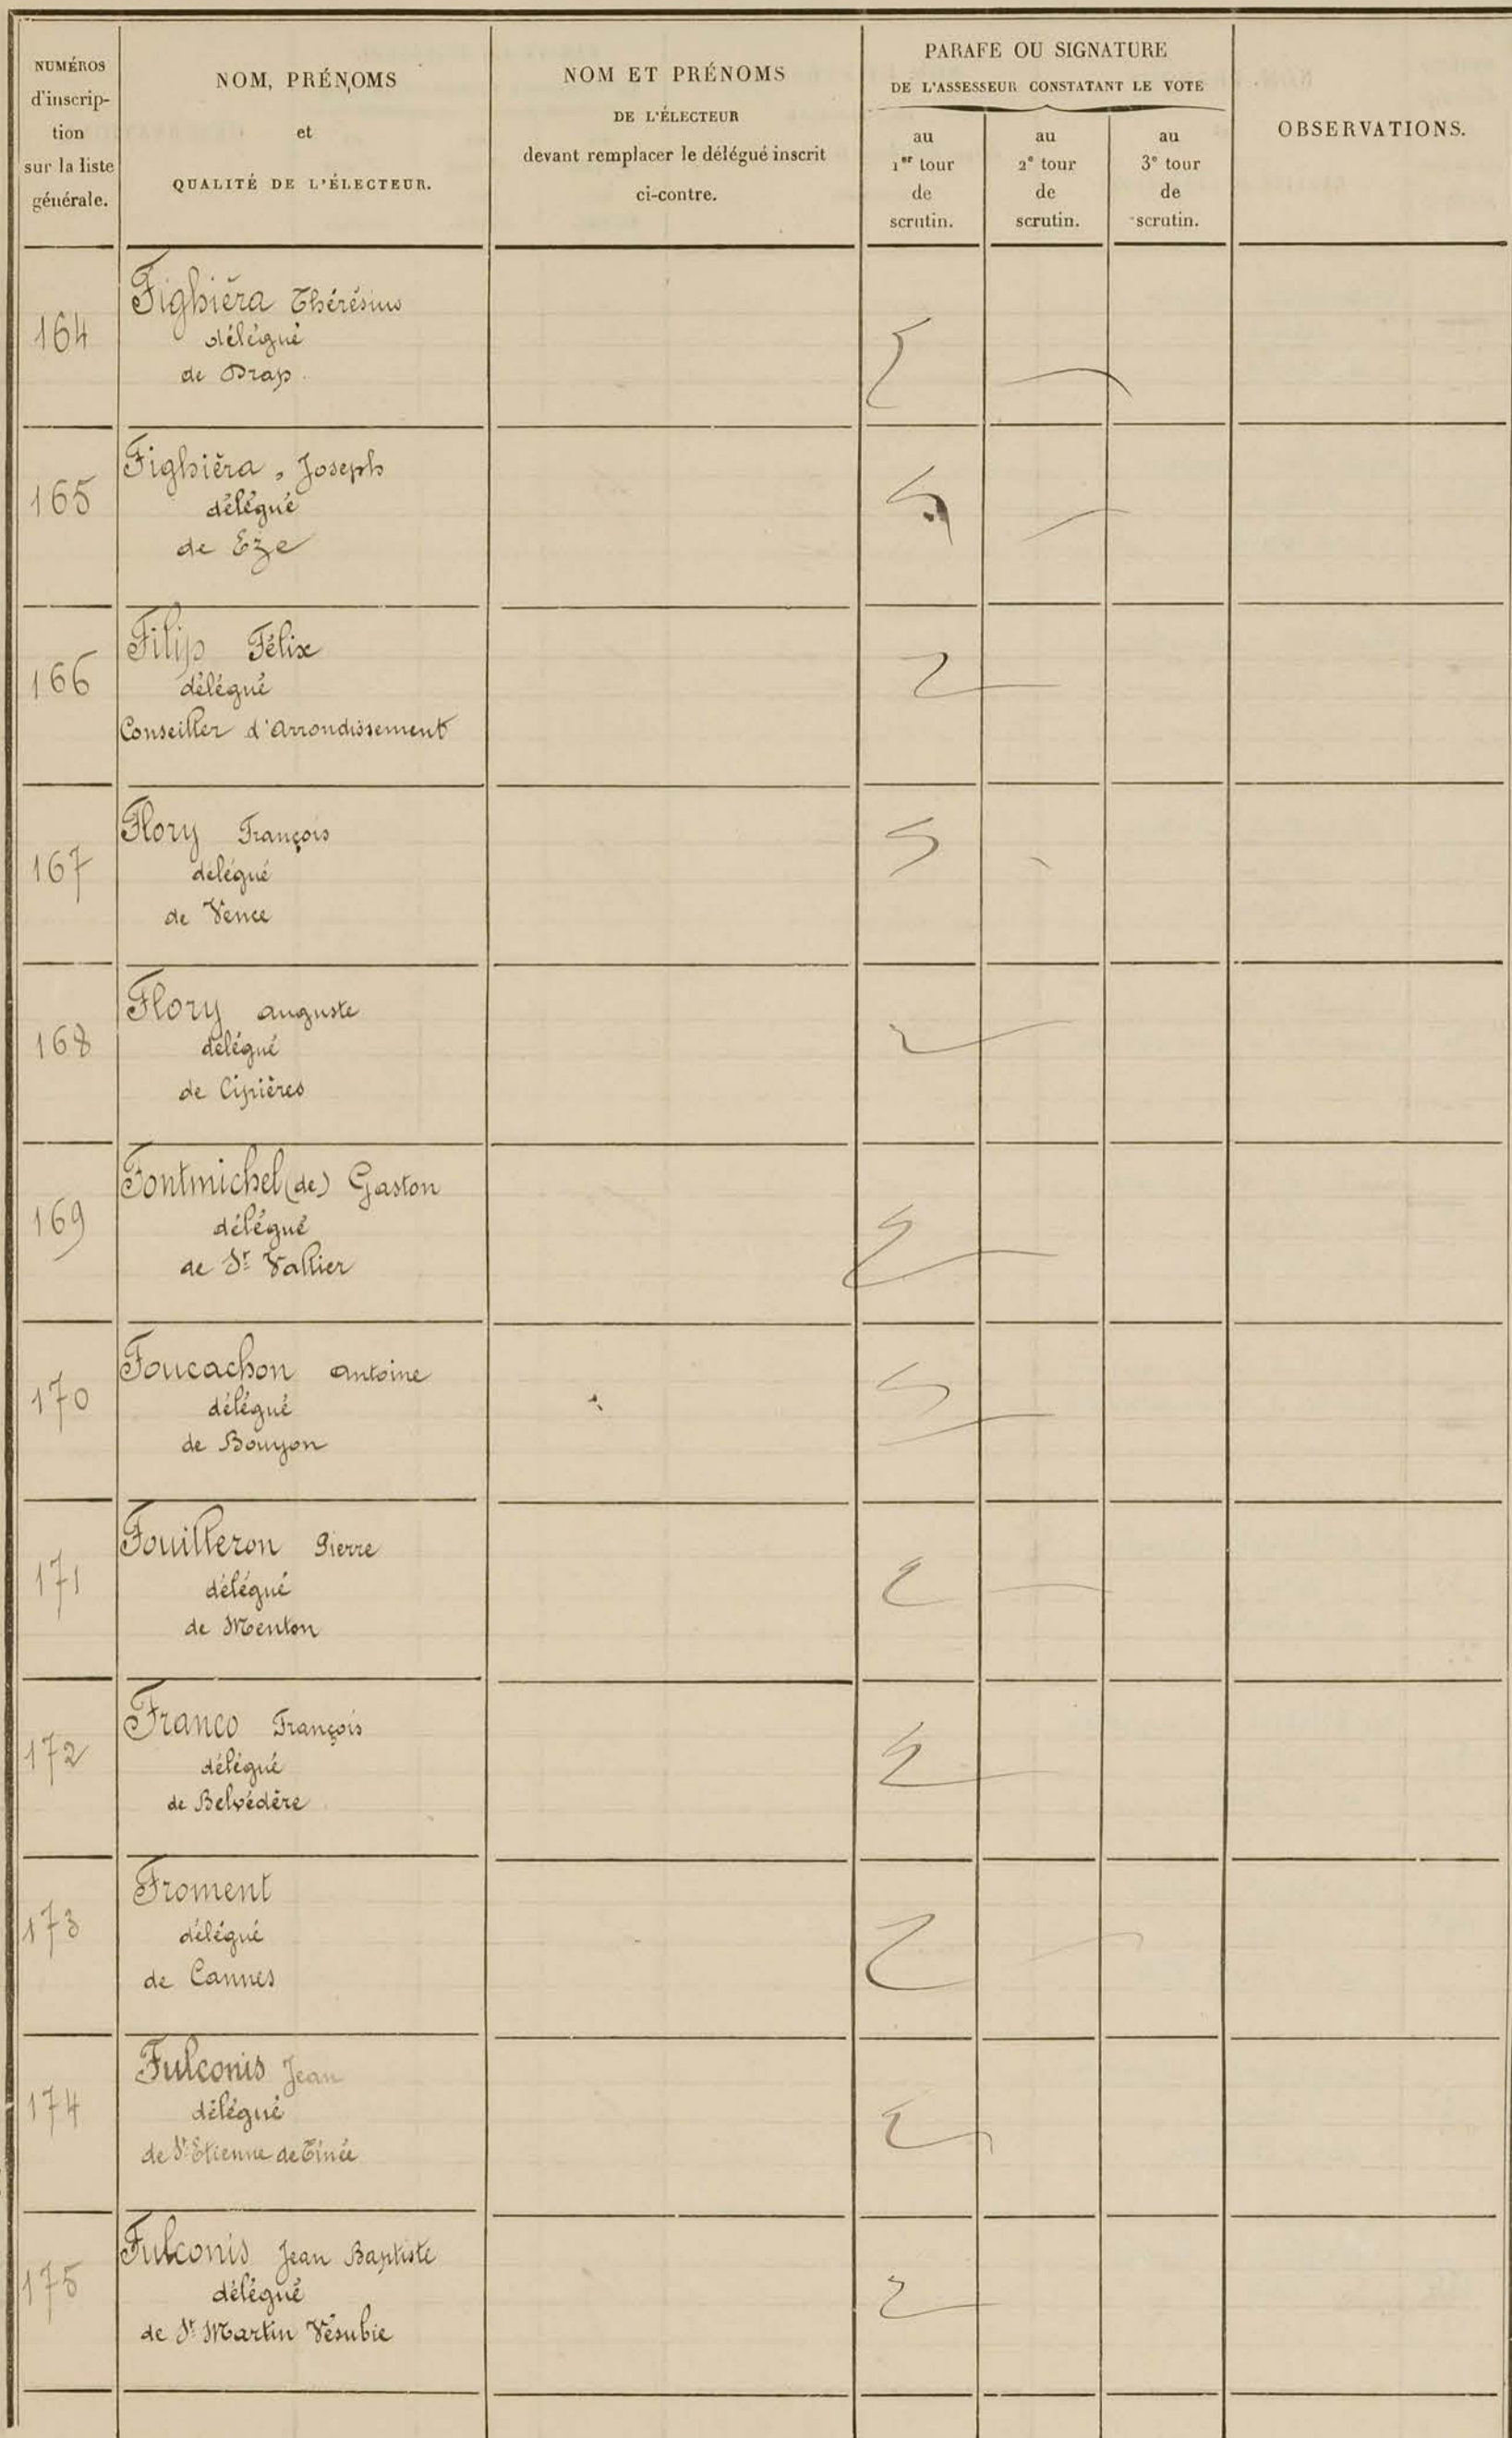 NUMÉROS
d'inscrip-
tion
sur la liste
générale.
NOM, PRÉNOMS
et
QUALITÉ DE L'ÉLECTEUR.
NOM ET PRÉNOMS
DE L'ÉLECTEUR
devant remplacer le délégué inscrit
ci-contre.
PARAFE OU SIGNATURE
DE L'ASSESSEUR CONSTATANT LE VOTE
au
1er tour
de
scrutin.
au
2e tour
de
scrutin.
au
3e tour
de
scrutin.
OBSERVATIONS.
164
Fighiéra Thérésius
délégué
de Drap
165
Fighiéra, Joseph
délégué
de Eze
166
Filip Félix
délégué
Conseiller d'Arrondissement
167
Flory François
delégué
de Vence
168
Flory auguste
délégué
de Cipières
169
Fontmichel (de) Gaston
délégué
de St Vallier
170
Foucachon antoine
délégué
de Bouyon
171
Fouilleron Pierre
délégué
de Menton
172
Franco François
délégué
de Belvédère
173
Froment
délégué
de Cannes
174
Fulconis Jean
délégué
de St Etienne de Tinée
175
Fulconis Jean Baptiste
délégué
de St Martin Vésubie